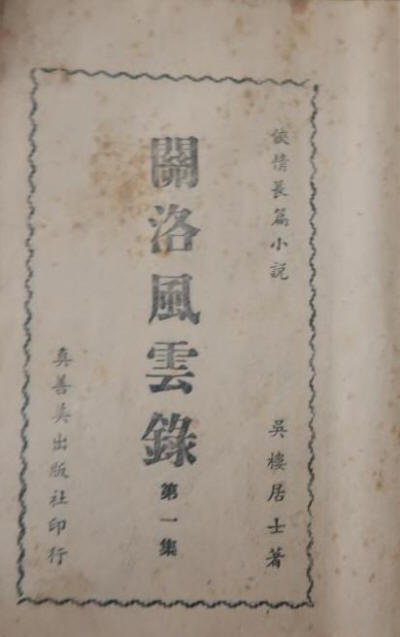 俠情長篇小説
吳樓居士著
關洛風雲錄
第一集
真善美出版社印行